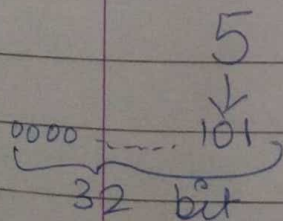 5
0000 ------ 101
32 bit